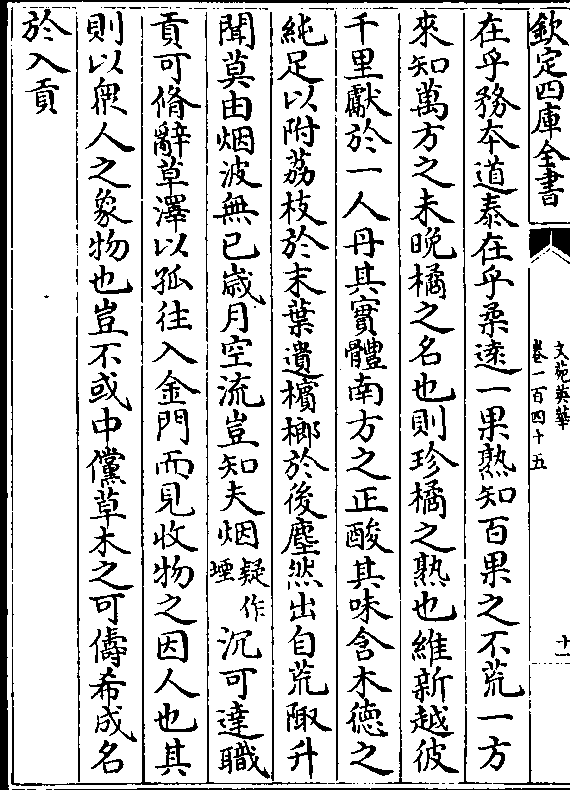 欽定四庫全書
文苑英華
卷一百四十五
十一
在乎務本道泰在乎柔逺一果熟知百果之不荒一方
來知萬方之未晩橘之名也則珍橘之熟也維新越彼
千里獻於一人丹其實體南方之正酸其味含木德之
純足以附荔枝於末葉遺檳榔於後塵然出自荒陬升
聞莫由烟波無已歳月空流豈知夫烟疑作堙沉可達職
貢可脩辭草澤以孤往入金門而見收物之因人也其
則以衆人之象物也豈不或中儻草木之可儔希成名
於入貢